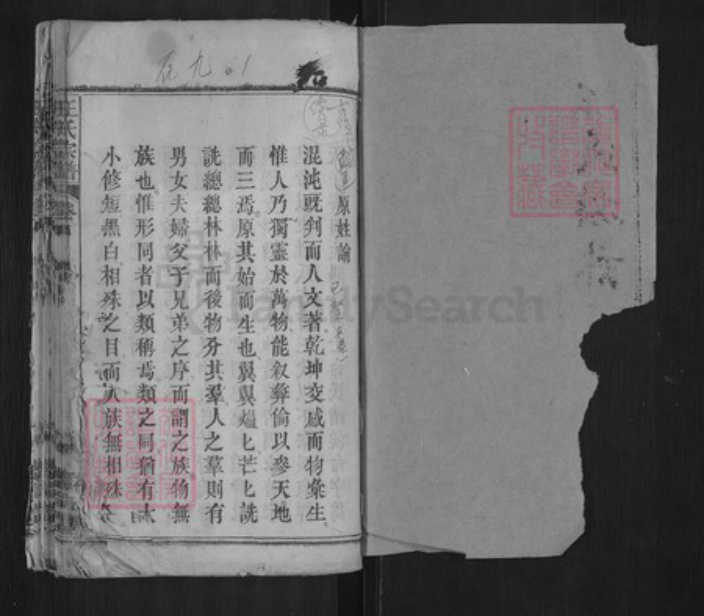 原姓論
混沌旣判而人文著乾坤交感而物彙生
惟人乃獨靈於萬物能叙彝倫以參天地
而三焉原其始而生也翼翼熅匕芒匕詵
詵總總林林而後物分其羣人之羣則有
男女夫婦父子兄弟之序而謂之族物無
族也惟形同者以類稱焉類之同猶有大
小修短黑白相殊之目而人族無相殊
王氏宗譜
九.1
FamilySearch